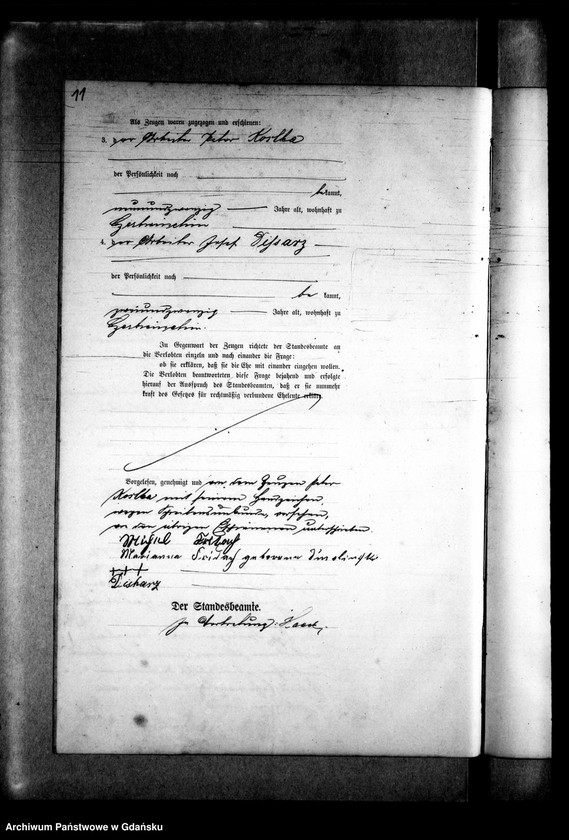 11
Als Zeugen waren zugezogen und erschienen:
3. der Arbeiter Peter Koslka
der Persönlichkeit nach
be kannt,
neunundzwanzig Jahre alt, wohnhaft zu
4. der Arbeiter Josef Dissarz
der Persönlichkeit nach
be kannt,
zweiundzwanzig Jahre alt, wohnhaft zu
In Gegenwart der Zeugen richtete der Standesbeamte an
die Verlobten einzeln und nach einander die Frage:
ob sie erklären, daß sie die Ehe mit einander eingehen wollen.
Die Verlobten beantworteten diese Frage bejahend und erfolgte
hierauf der Ausspruch des Standesbeamten, daß er sie nunmehr
kraft des Gesetzes für rechtmäßig verbundene Eheleute erkläre.
Vorgelesen, genehmigt und von dem Zeugen Peter
Koslka mit seinem Handzeichen
wegen Schreibensunkunde versehen,
von den übrigen Erschienenen unterschrieben
Marianna geborene
+++
Diskarz
Der Standesbeamte.
In Vertretung:
Archiwum Państwowe w Gdańsku